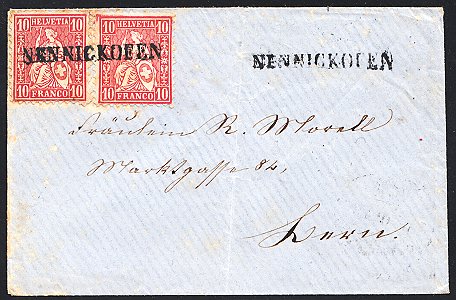 10 HELVETIA 10
10 FRANCO 10
10 HELVETIA 10
10 FRANCO 10
NENNICKOFEN
NENNICKOFEN
Fräulein R. Morell
Marktgasse 84,
Bern.